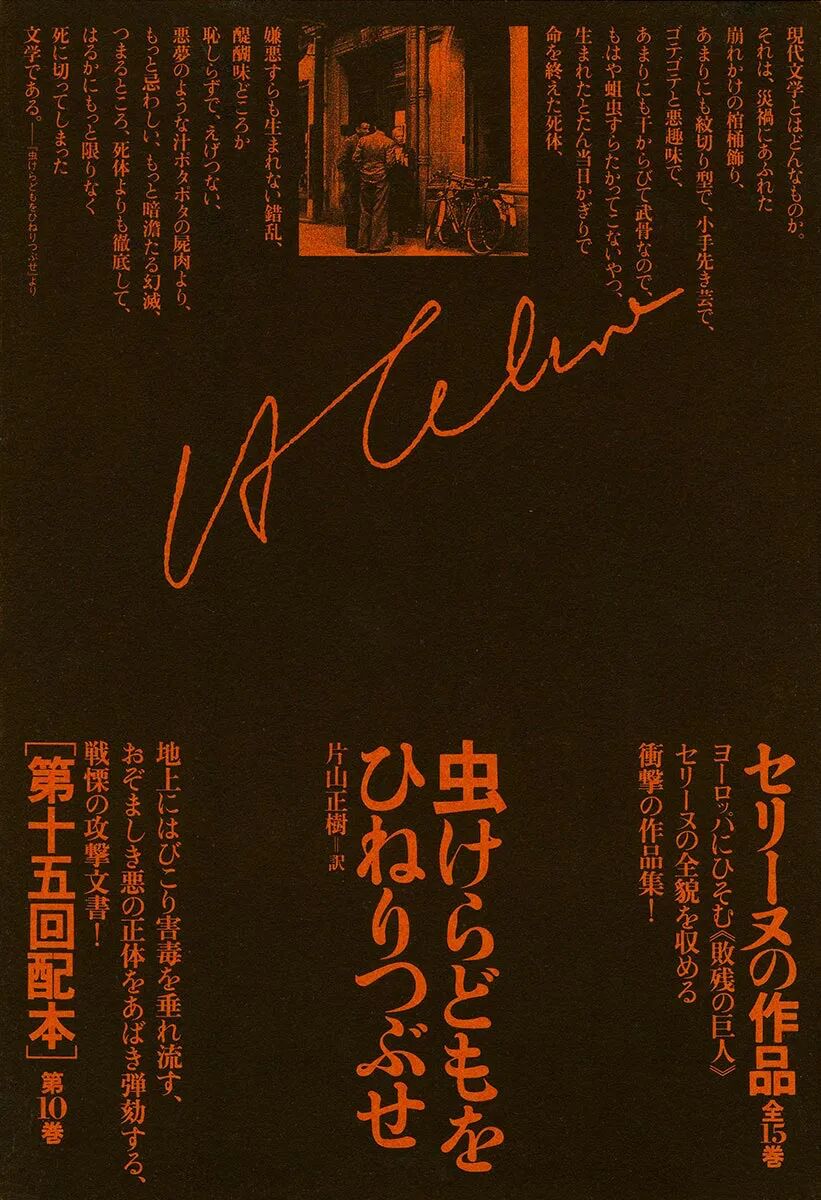 現代文学とはどんなものか。
それは、災禍にあふれた
崩れかけの棺桶飾り、
あまりにも紋切り型で、小手先き芸で、
ゴテゴテと悪趣味で、
あまりにも干からびて武骨なので、
もはや蛆虫すらたかってこないやつ、
生まれたとたん当日かぎりで
命を終えた死体、
嫌悪すらも生まれない錯乱、
醍醐味どころか
恥しらずで、えげつない、
悪夢のような汁ボタボタの屍肉より、
もっと忌わしい、もっと暗澹たる幻滅、
つまるところ、死体よりも徹底して、
はるかにもっと限りなく
死に切ってしまった
文学である。——『虫けらどもをひねりつぶせ』より
LF Celine
セリーヌの作品 全15巻
ヨーロッパにひそむ《敗残の巨人》
セリーヌの全貌を収める
衝撃の作品集!
虫けらどもを
ひねりつぶせ
片山正樹=訳
地上にはびこり害毒を垂れ流す、
おぞましき悪の正体をあばき弾劾する、
戦慄の攻撃文書!
[第十五回配本] 第10巻